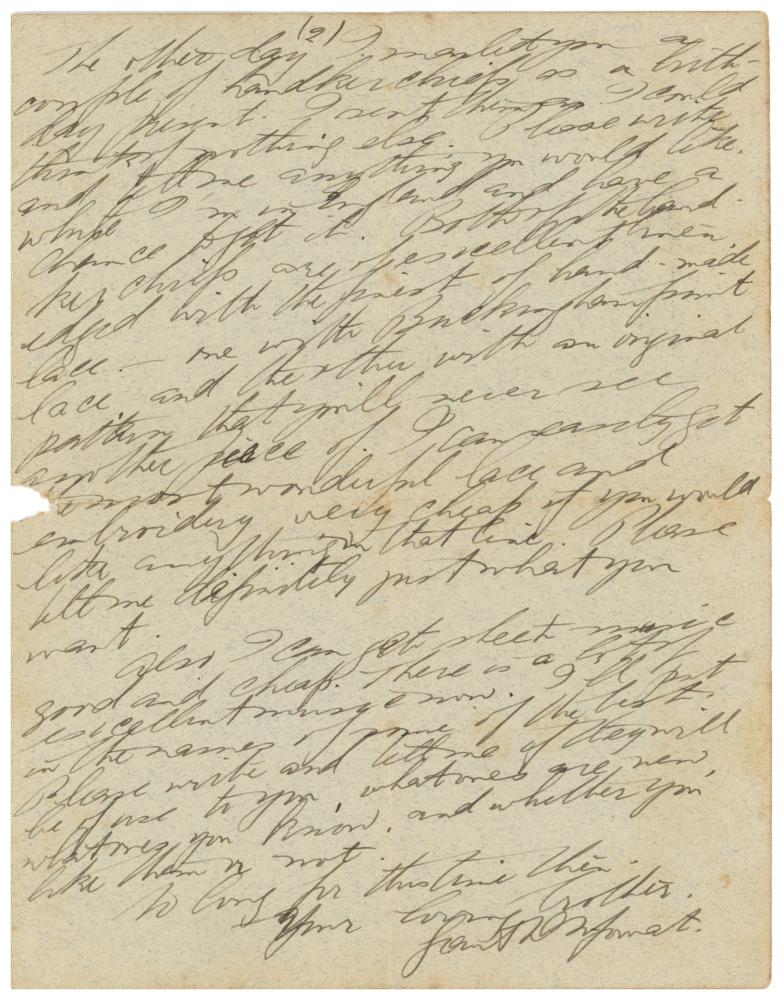 (2)
The other day I mailed you a
couple of handkerchiefs as a birth-
day present. I sent them as I could
think of nothing else. Please write
and tell me anything you would like,
while I'm in England and have a
chance to get it. Both of the hand-
kerchiefs are of excellent linen
edged with the finest of hand-made
lace. — one with Buckingham point
lace and the other with an original
pattern that you'll never see
another piece of. I can easily get
most wonderful lace and
embroidery very cheap if you would
like anything in that line. Please
tell me definitely just what you
want.
Also I can get sheet music
good and cheap. There is a lot of
excellent music now. I'll put
in the names of some of the best.
Please write and tell me if they will
be of use to you what ones are new,
what ones you know, and whether you
like them or not.
So long for this time then.
Your loving brother.